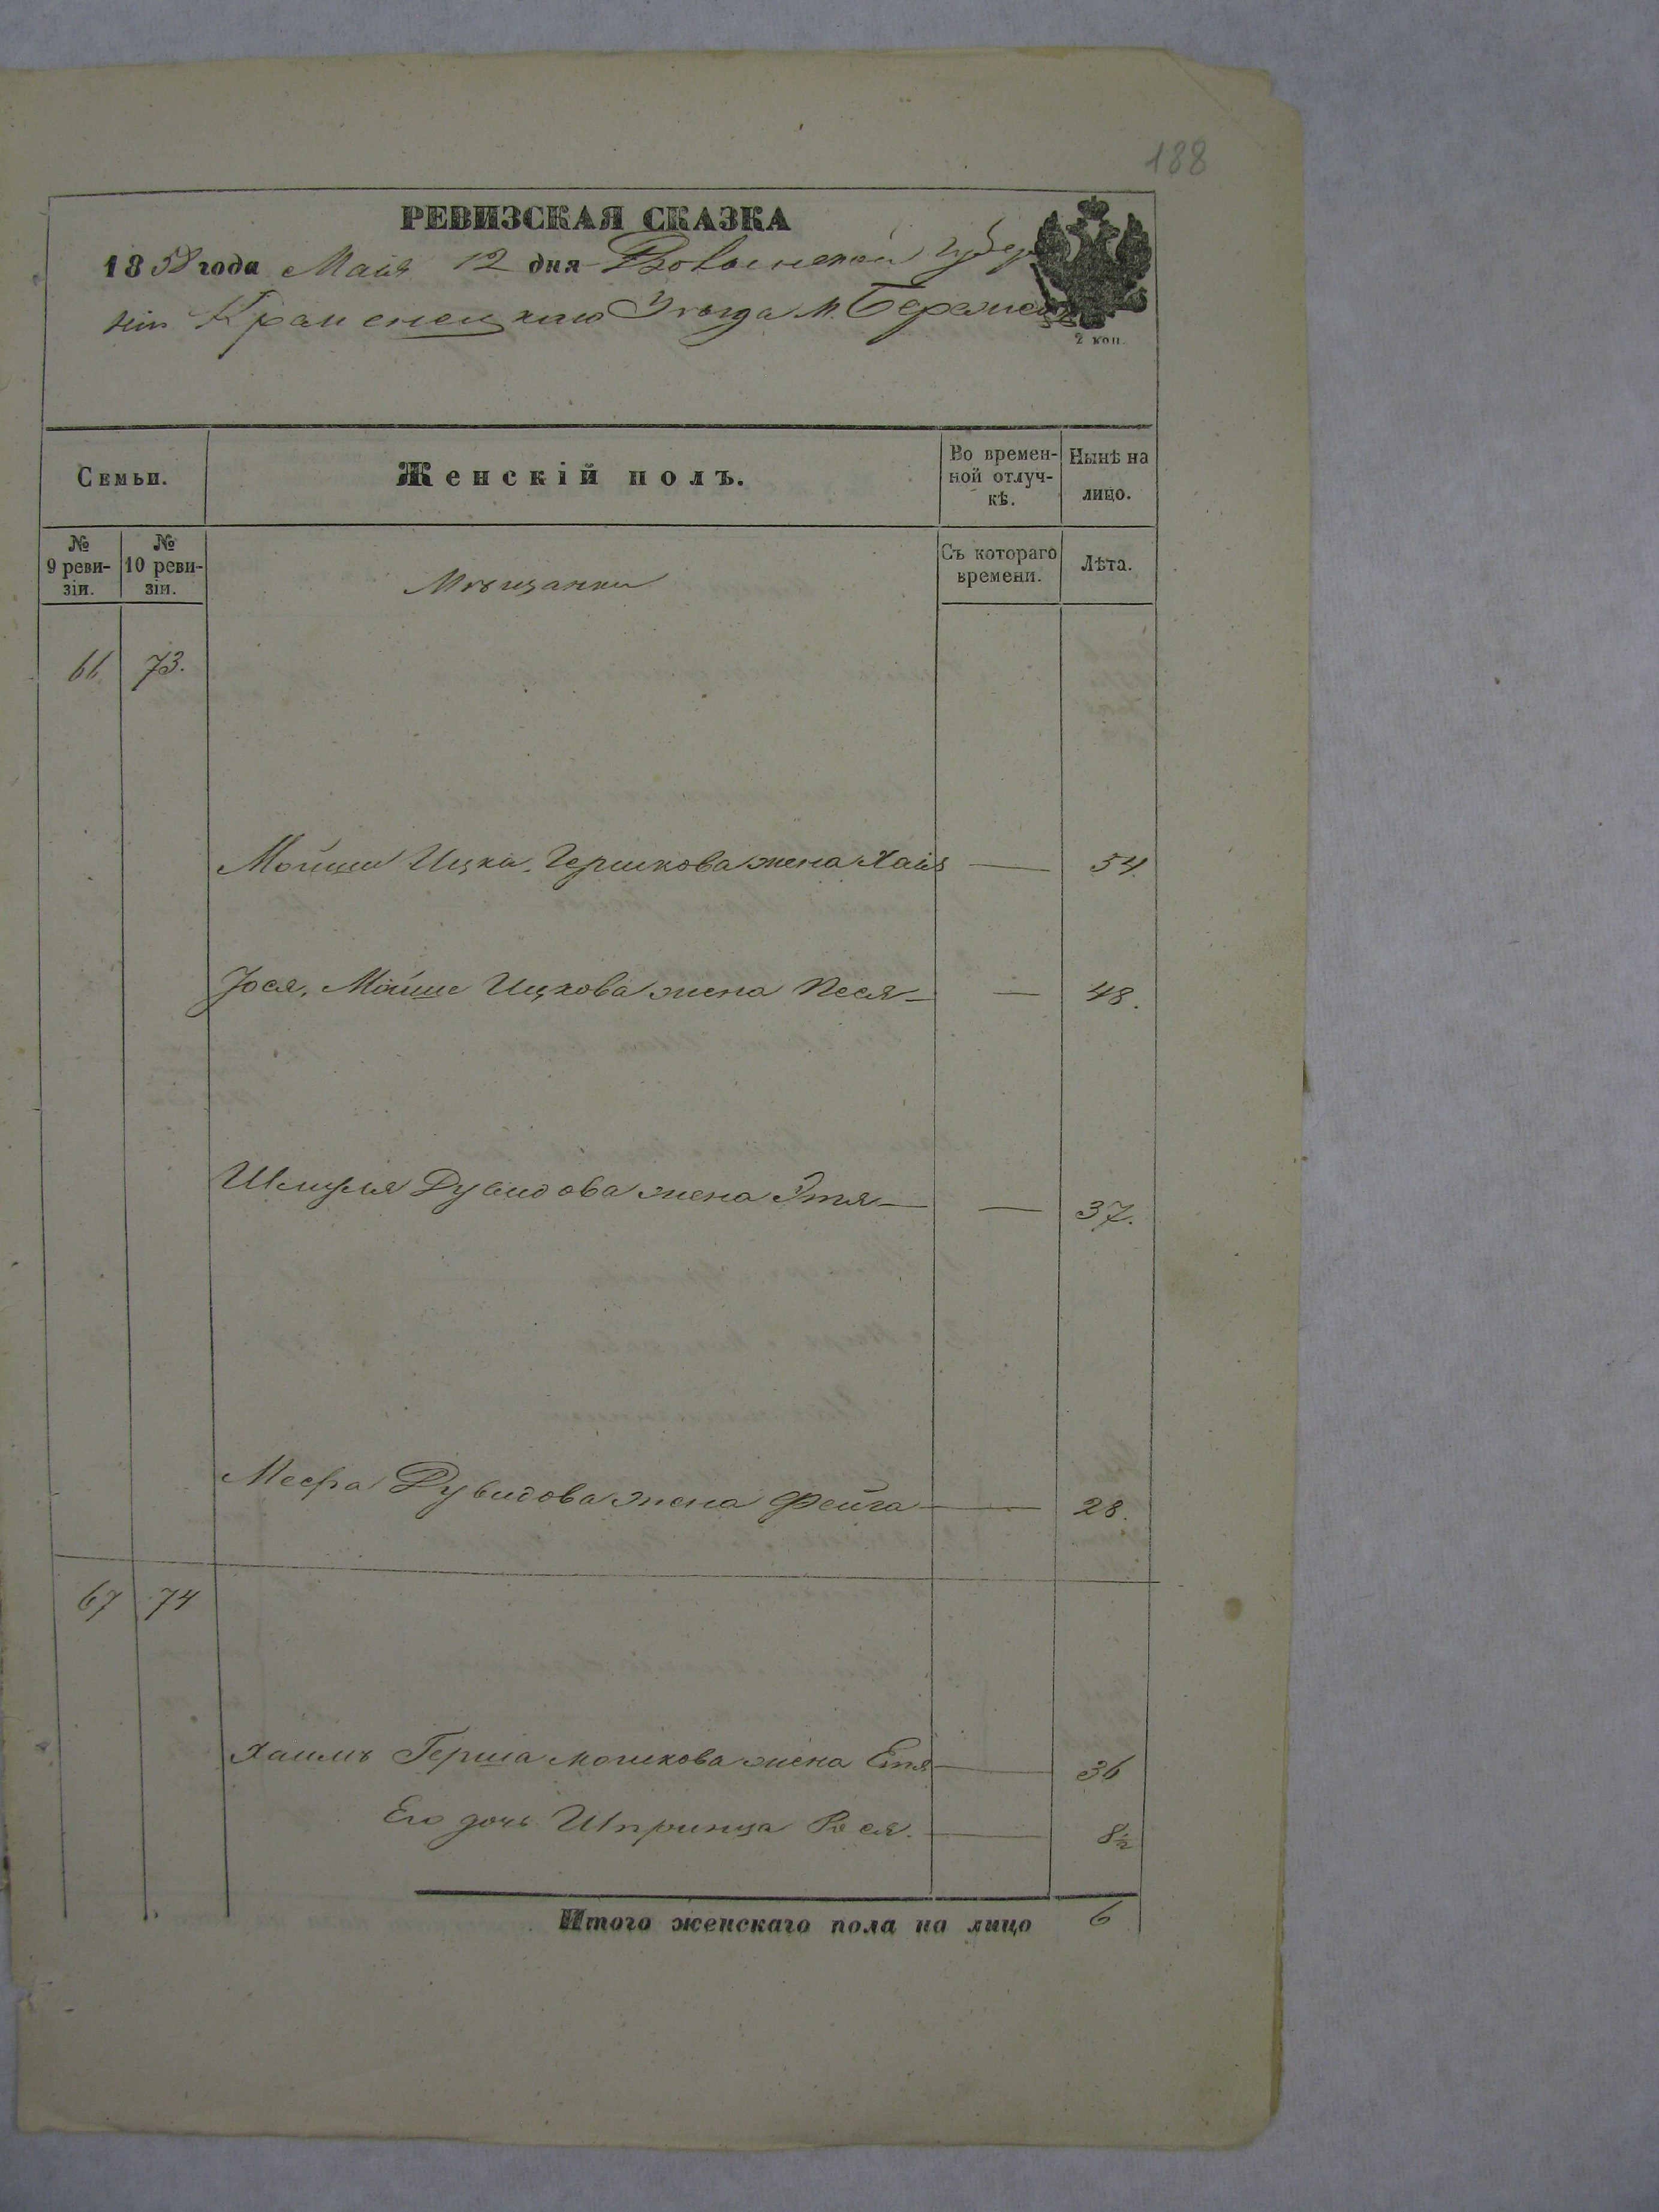 188
РЕВИЗСКАЯ СКАЗКА
1858 года Маія 12 дня Волынской Губер
ніи Кременецкаго Уѣзда м. Бережец
2 коп.
Семьи.
Женскій полъ.
Во времен-
ной отлуч-
кѣ.
Нынѣ на
лицо.
№
9 реви-
зіи.
№
10 реви-
зіи.
Мѣщанки
Съ котораго
времени.
Лѣта.
66 73.
Мойши Ицка Гершкова жена Хаия — 54.
Іося Мойше Ицкова жена Песя — 48.
Шмуля Дувидова жена Этя — 37.
Дувидова жена Фейга — 28.
67 74
Хаимъ Герша Мошкова жена Етя — 36
Его дочь Шпринца Рося. — 8½
Итого женскаго пола на лицо 6